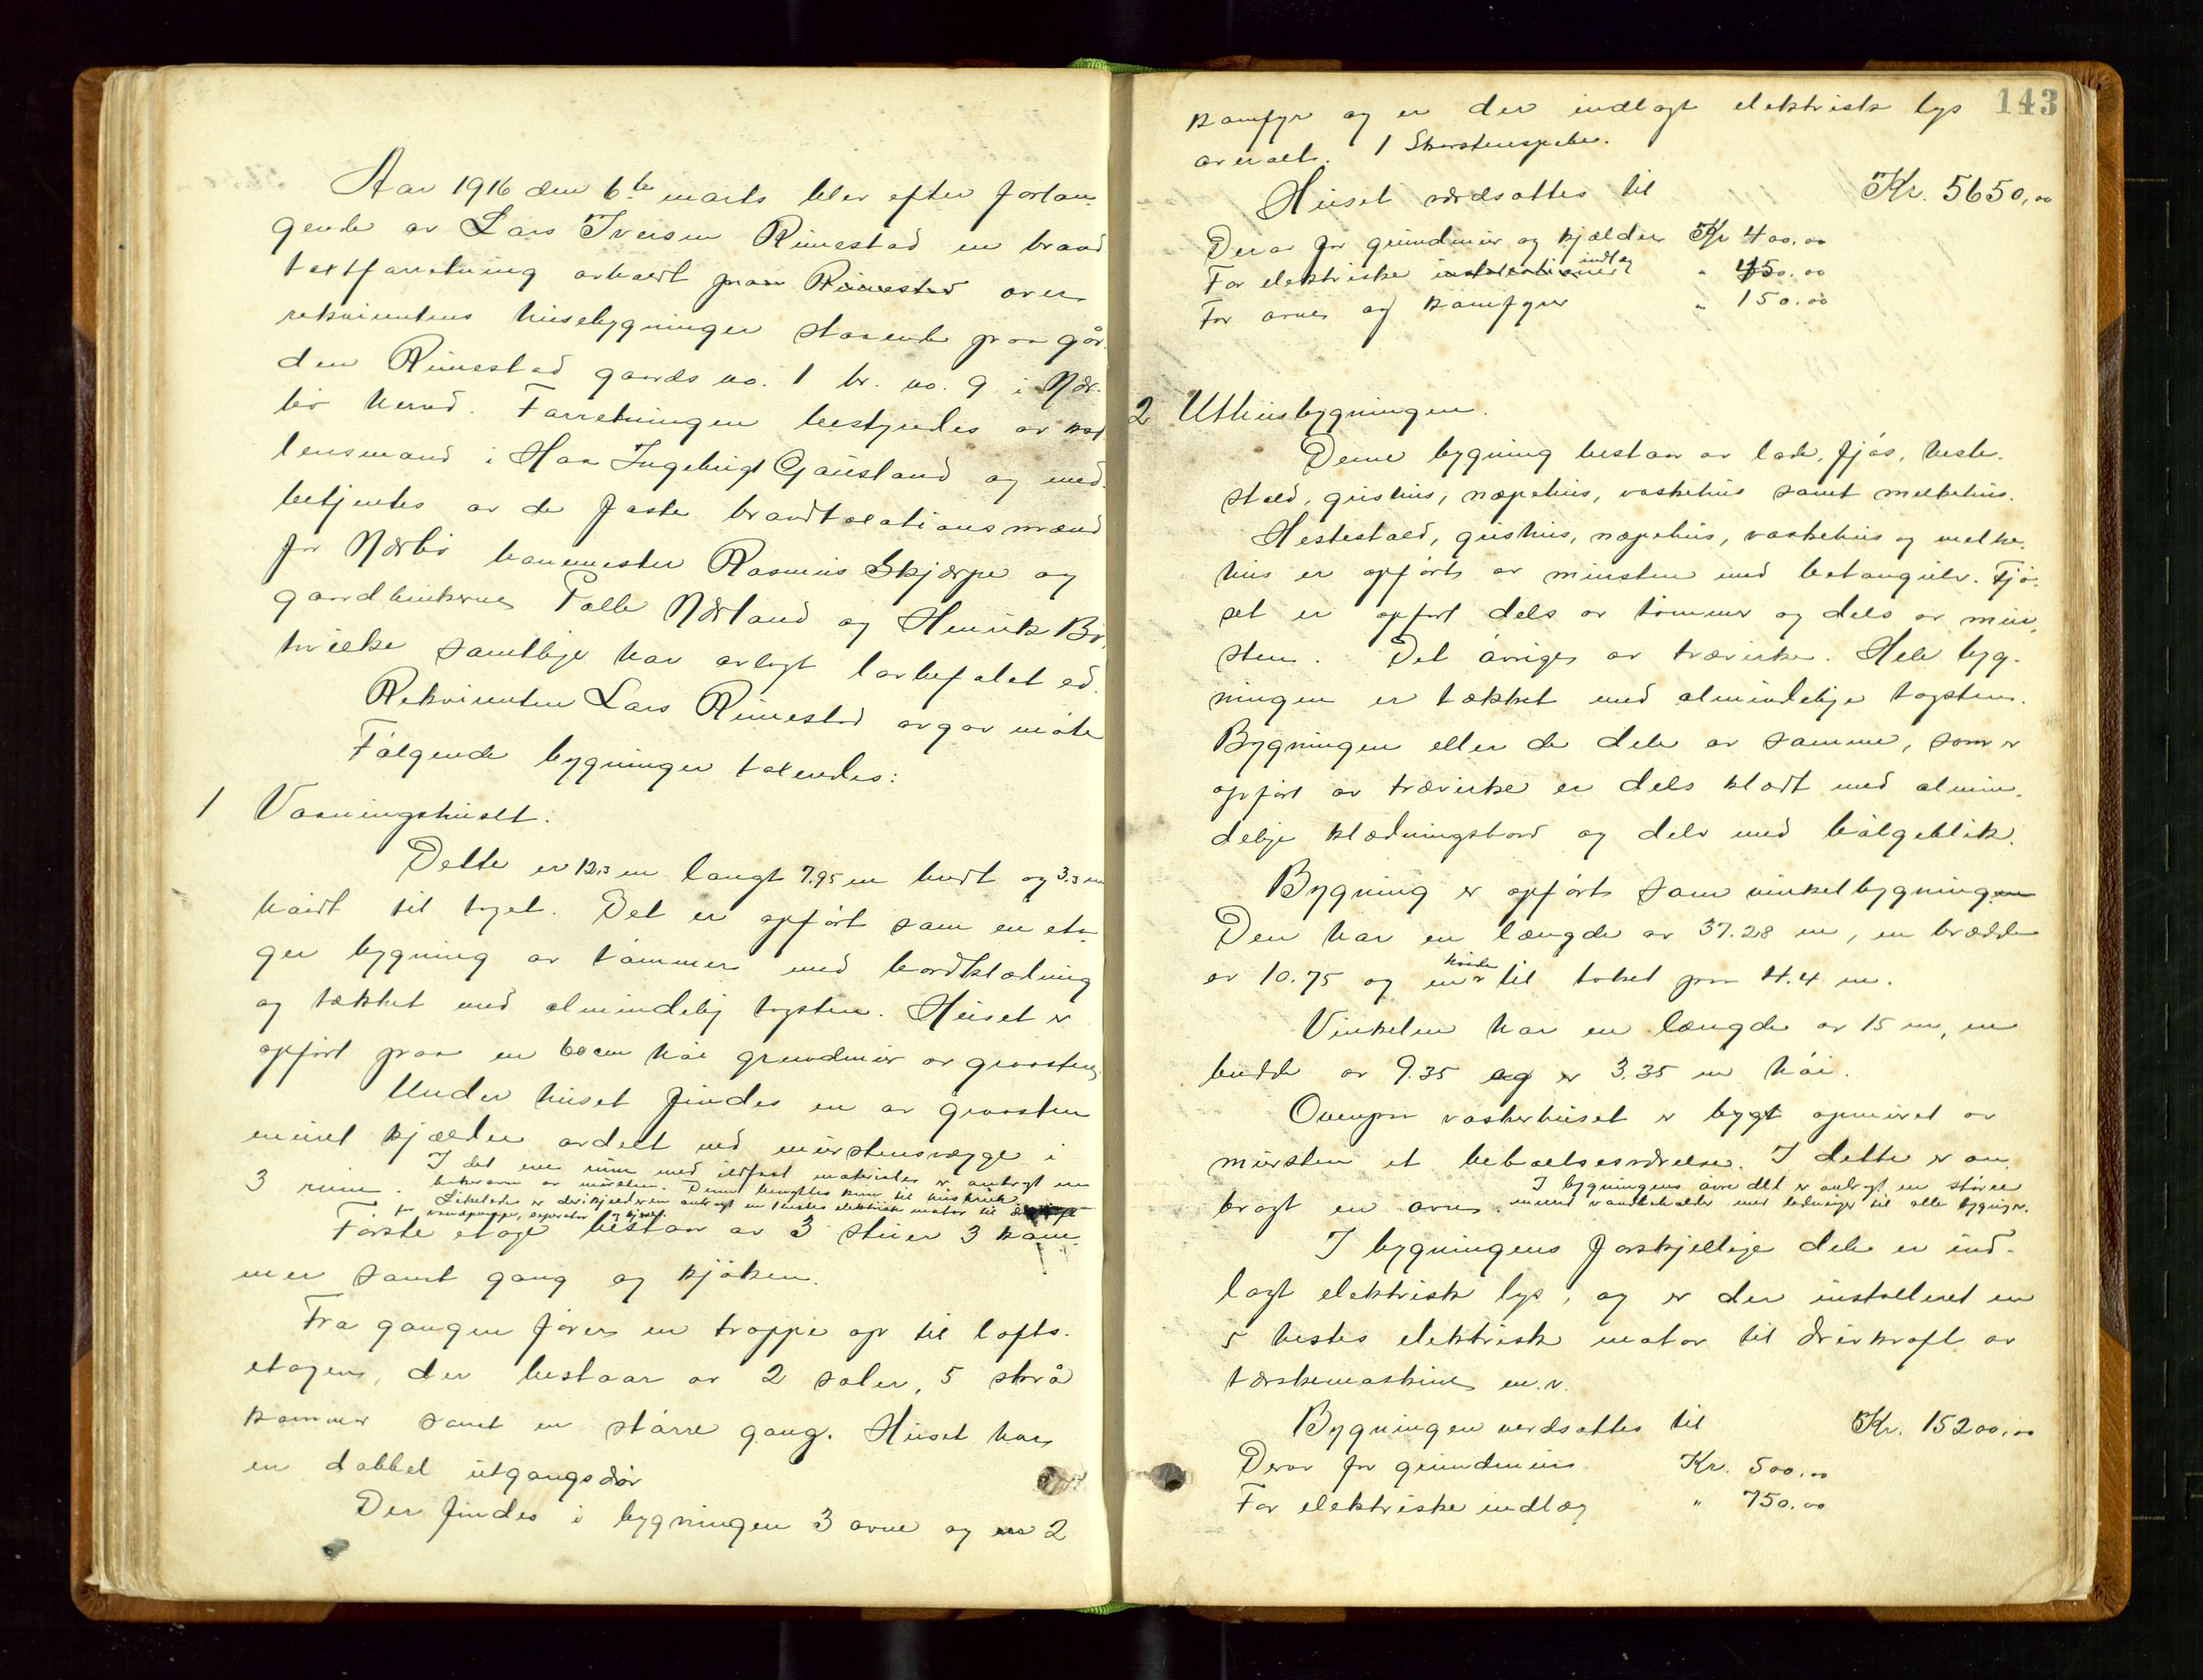 Aar 1916 den 6te marts blev efter forlan-
gende av Lars Iversen Rimestad en brand
taxtforretning avholdt paa Rimestad over
rekvirentens husebygninger staaende paa går-
den Rimestad gaards no. 1 br. no. 9 i Nær-
bø herred. Forretningen bestyredes av
lensmand i Haa Ingebrigt Gausland og med-
betjentes av de faste brandtaxationsmænd
for Nærbø banemester Rasmus Skjærpe og
gaardbrukerne Tolle Nærland og Henrik Bø,
hvilke samtlige har avlagt lovbefalet ed.
Rekvirenten Lars Rimestad avgav møte
Følgende bygninger taxerdes:
1 Vaaningshuset.
Dette er 12.3 m langt 7.95 m bredt og 3.3 m
høidt til taget. Det er opført som en eta-
ges bygning av tømmer med bordklædning
og tækket med almindelig tagsten. Huset er
opført paa en 60 cm høi grundmur av graasten,
Under huset findes en av graasten
muret kjælder avdelt med murstensvægge i
3 rum. I det ene rum med ildfast materiales er anbragt en
bakerovn av mursten. Denne benyttes kun til husbruk
Likeledes er der i kjælderen anbragt en 1 hestes elektrisk motor til
for vandpumpe, seperator og kjærne.
Første etage bestaar av 3 stuer 3 kam-
mer samt gang og kjøken.
Fra gangen fører en trappe op til lofts-
etagen, der bestaar av 2 saler, 5 skrå
kammer samt en større gang. Huset har
en dobbel utgangsdør
Der findes i bygningen 3 ovne og en 2
143
komfyr og er der indlagt elektrisk lys
overalt. 1 Skorstenspibe.
Huset værdsattes til Kr. 5650,00
Derav for grundmur og kjælder Kr 400.00
For elektriske installationer indlæg " 450.00
For ovne og komfyrer " 150.00
2 Uthusbygningen.
Denne bygning bestaar av lade, fjøs, heste-
stald, grishus, næpehus, vaskehus samt melkehus.
Hestestald, grishus, næpehus, vaskehus og melke-
hus er opført av mursten med betongulv. Fjø-
set er opført dels av tømmer og dels av mur-
sten. Det øvrige av trævirke. Hele byg-
ningen er tækket med almindelige tagsten.
Bygningen eller de dele av samme, som er
opført av trævirke er dels klædt med almin-
delige klædningsbord og dels med bølgeblik.
Bygning er opført som vinkelbygningen
Den har en længde av 37.28 m, en brædde
av 10.75 og en høide til taket paa 4.4 m.
Vinkelen har en længde av 15 m, en
bredde av 9.35 og er 3.35 m høi.
Ovenpaa vaskerhuset er bygt opmuret av
mursten et beboelsesværelse. I dette er an-
bragt en ovn. I bygningens øvre del er anbragt en større
muret vandbeholder med ledninger til alle bygninger.
I bygningens forskjellige dele er ind-
lagt elektrisk lys, og er der installeret en
5 hestes elektrisk motor til drivkraft av
tærskemaskine m.v.
Bygningen verdsattes til Kr. 15200,00
Derav for grundmur Kr. 500,00
For elektriske indlæg " 750.00